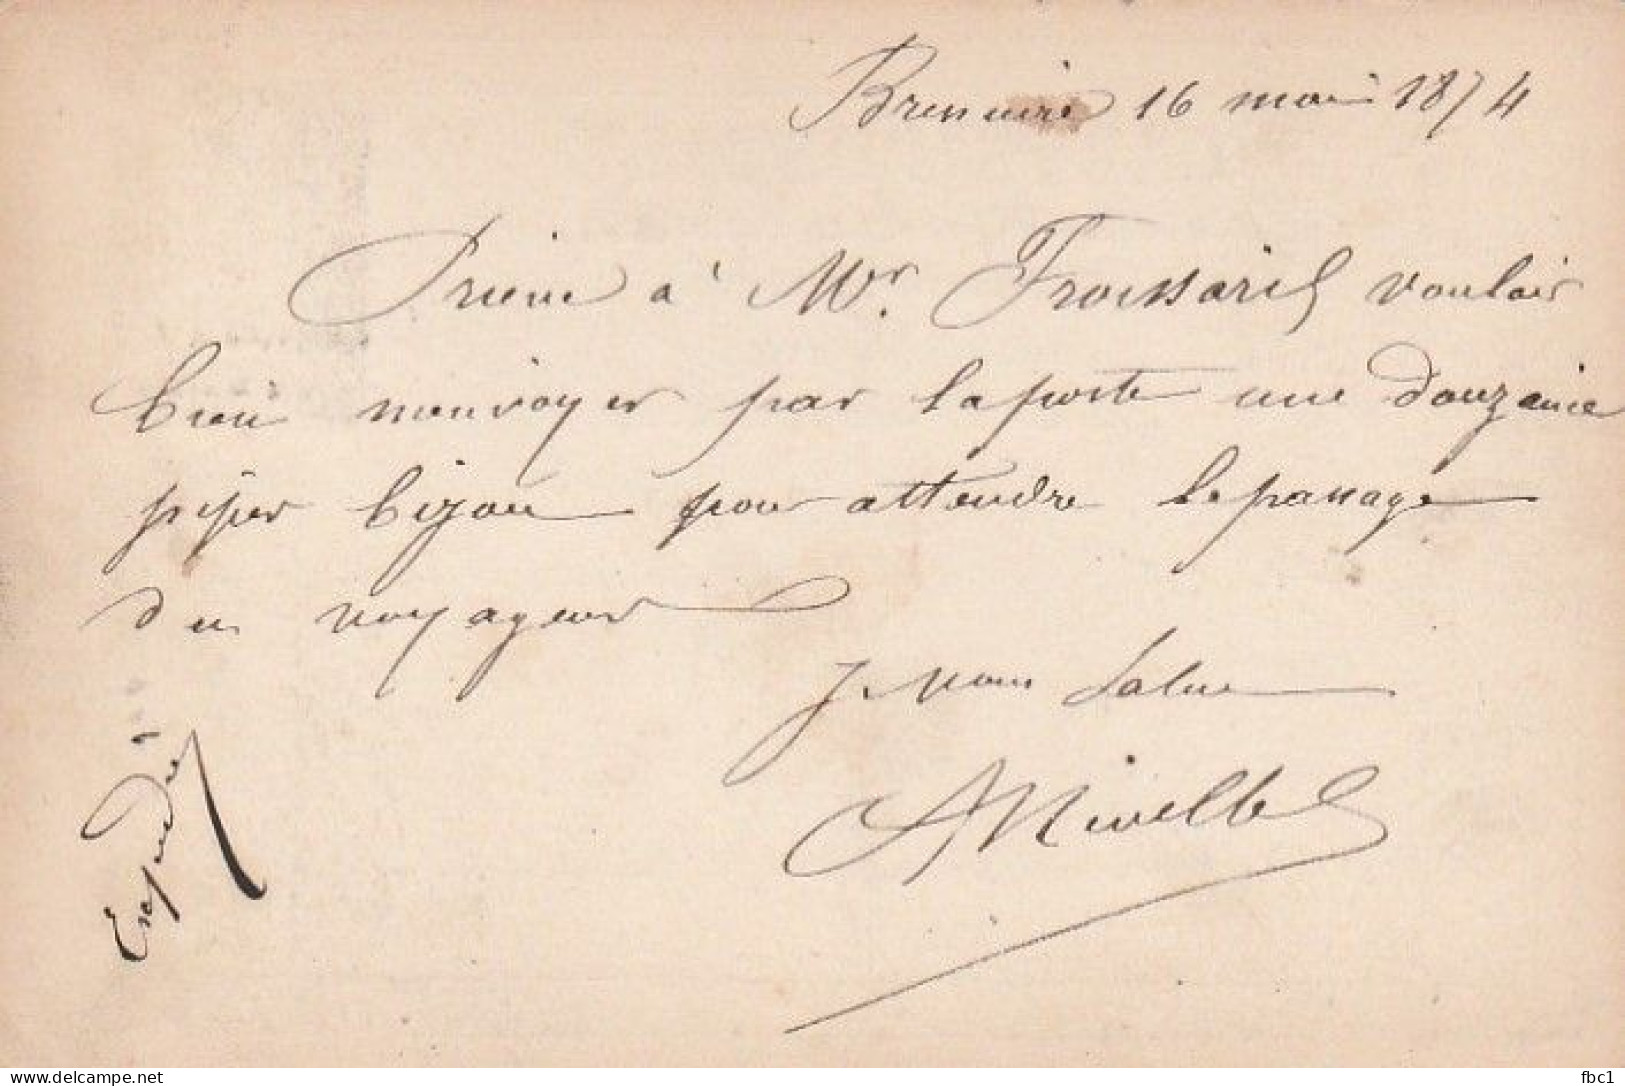 Bressuire 16 mai 1874
Prière à Mr. Froissard vouloir
bien m'envoyer par la poste une douzaine
pipes bijou pour attendre le passage
du voyageur
Je vous salue
ANivelle
Expédié
delcampe.net
fbc1